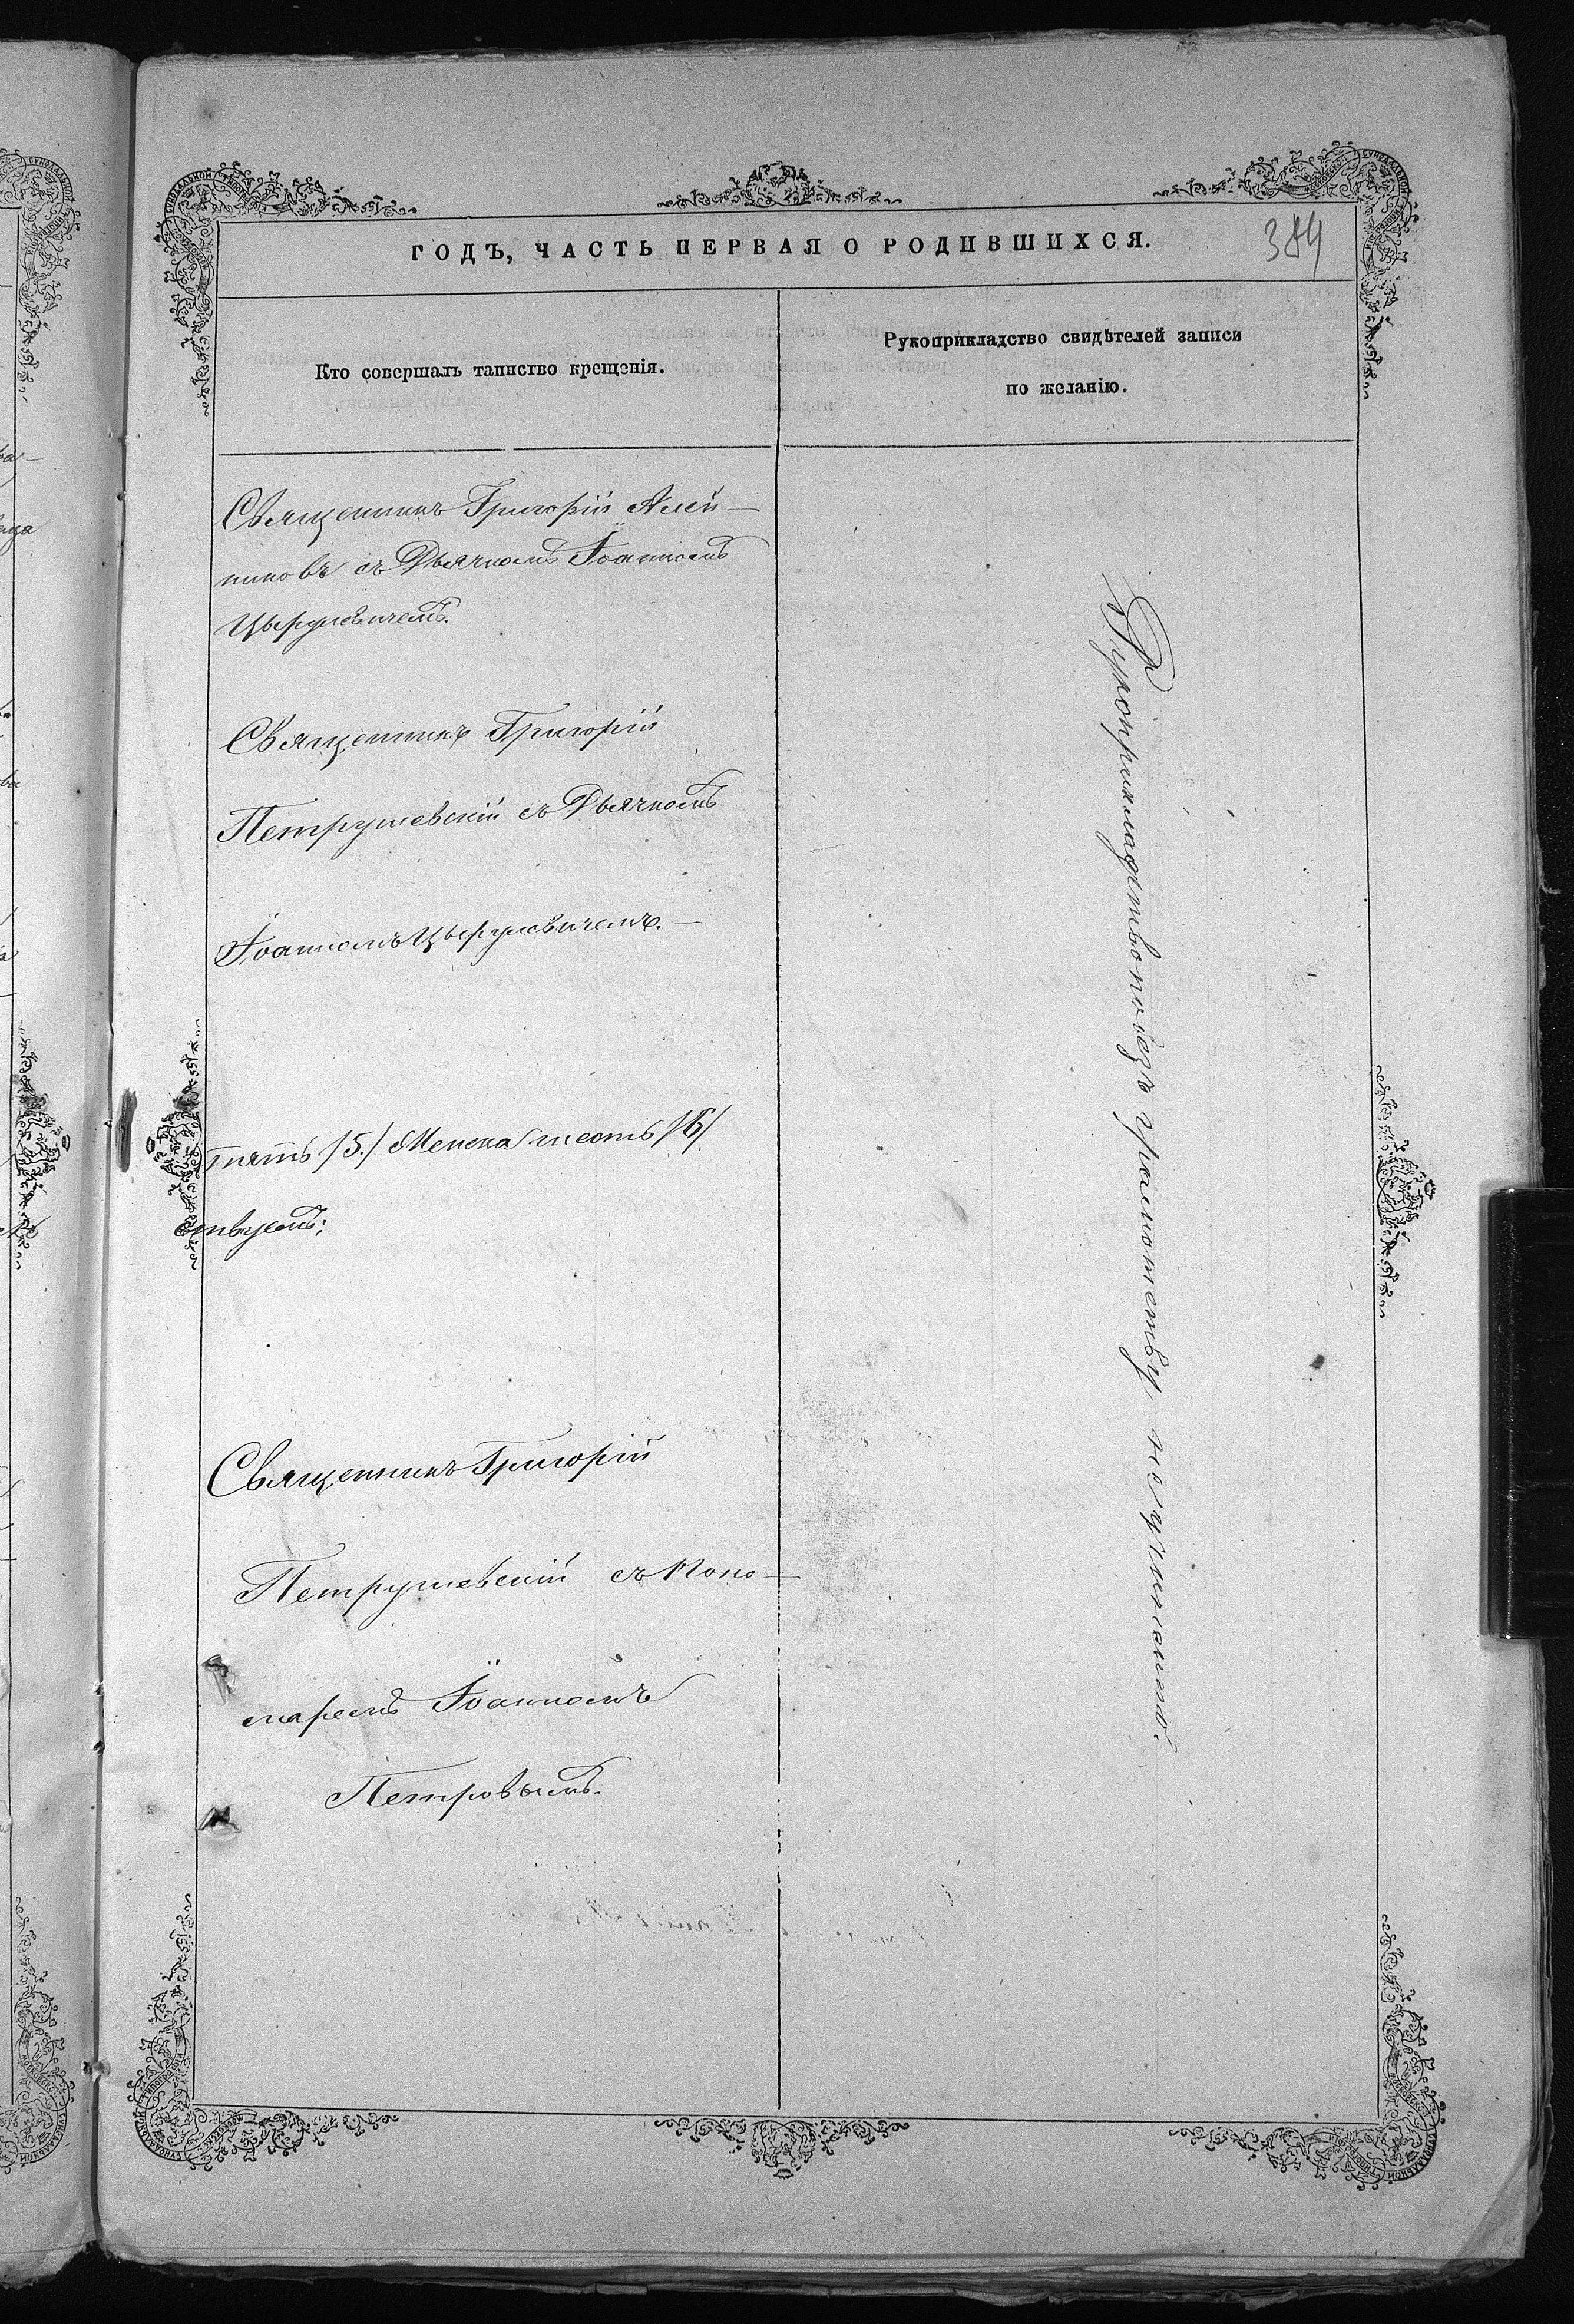 ГОДЪ, ЧАСТЬ ПЕРВАЯ О РОДИВШИХСЯ.
384
Кто совершалъ таинство крещенія.
Рукоприкладство свидѣтелей записи
по желанію.
Священникъ Григорій Алей-
никовъ съ Дьячкомъ Іоанномъ
Цыруевичемъ.
Священникъ Григорій
Петрушевскій съ Дьячкомъ
Іоанномъ Цыруевичемъ.
пять /5./ Женска шесть /6/
ствуетъ;
Священникъ Григорій
Петрушевскій съ Поно-
маремъ Іоанномъ
Петровымъ.
Рукоприкладство по безъ грамотству не учинено.